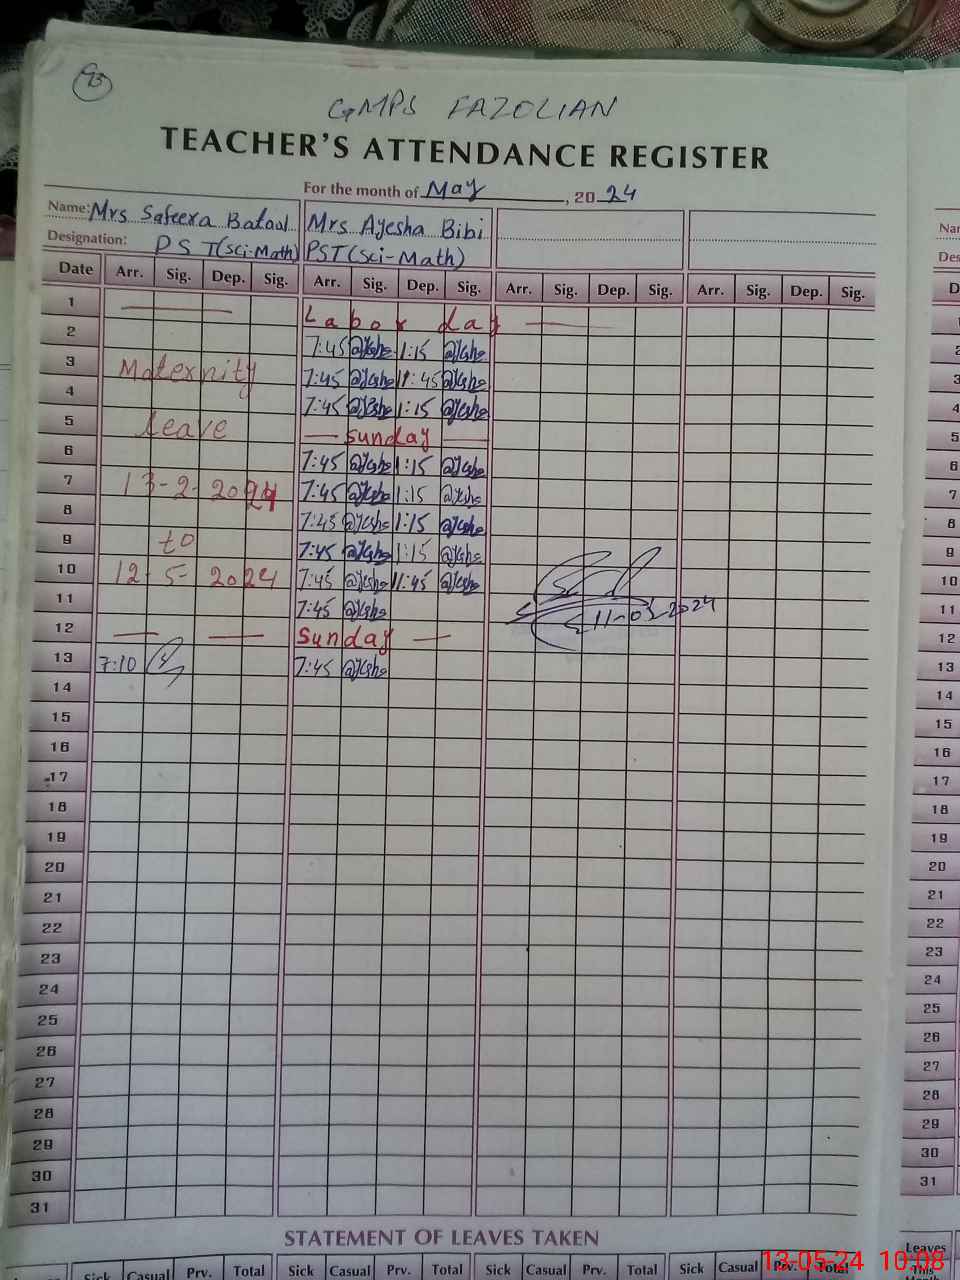 93
GMPS FAZOLIAN
TEACHER'S ATTENDANCE REGISTER
For the month of May, 2024
Name: Mrs Safeera Batool Mrs Ayesha Bibi
Designation: PST(Sci-Math) PST(Sci-Math)
Date Arr. Sig. Dep. Sig. Arr. Sig. Dep. Sig. Arr. Sig. Dep. Sig. Arr. Sig. Dep. Sig.
1 Labor day
2 7:45 1:15
3 Maternity 7:45 11:45
4 7:45 1:15
5 leave Sunday
6 7:45 1:15
7 13-2-2024 7:45 1:15
8 7:45 1:15
9 to 7:45 1:15
10 12-5-2024 7:45 11:45
11 7:45 11-05-2024
12 Sunday
13 7:10 7:45
14
15
16
17
18
19
20
21
22
23
24
25
26
27
28
29
30
31
STATEMENT OF LEAVES TAKEN
Sick Casual Prv. Total Sick Casual Prv. Total Sick Casual Prv. Total Sick Casual Prv. Total
Nar
Des
D
2
3
4
5
6
7
8
9
10
11
12
13
14
15
16
17
18
19
20
21
22
23
24
25
26
27
28
29
30
31
Leaves
This
13.05.24 10:08